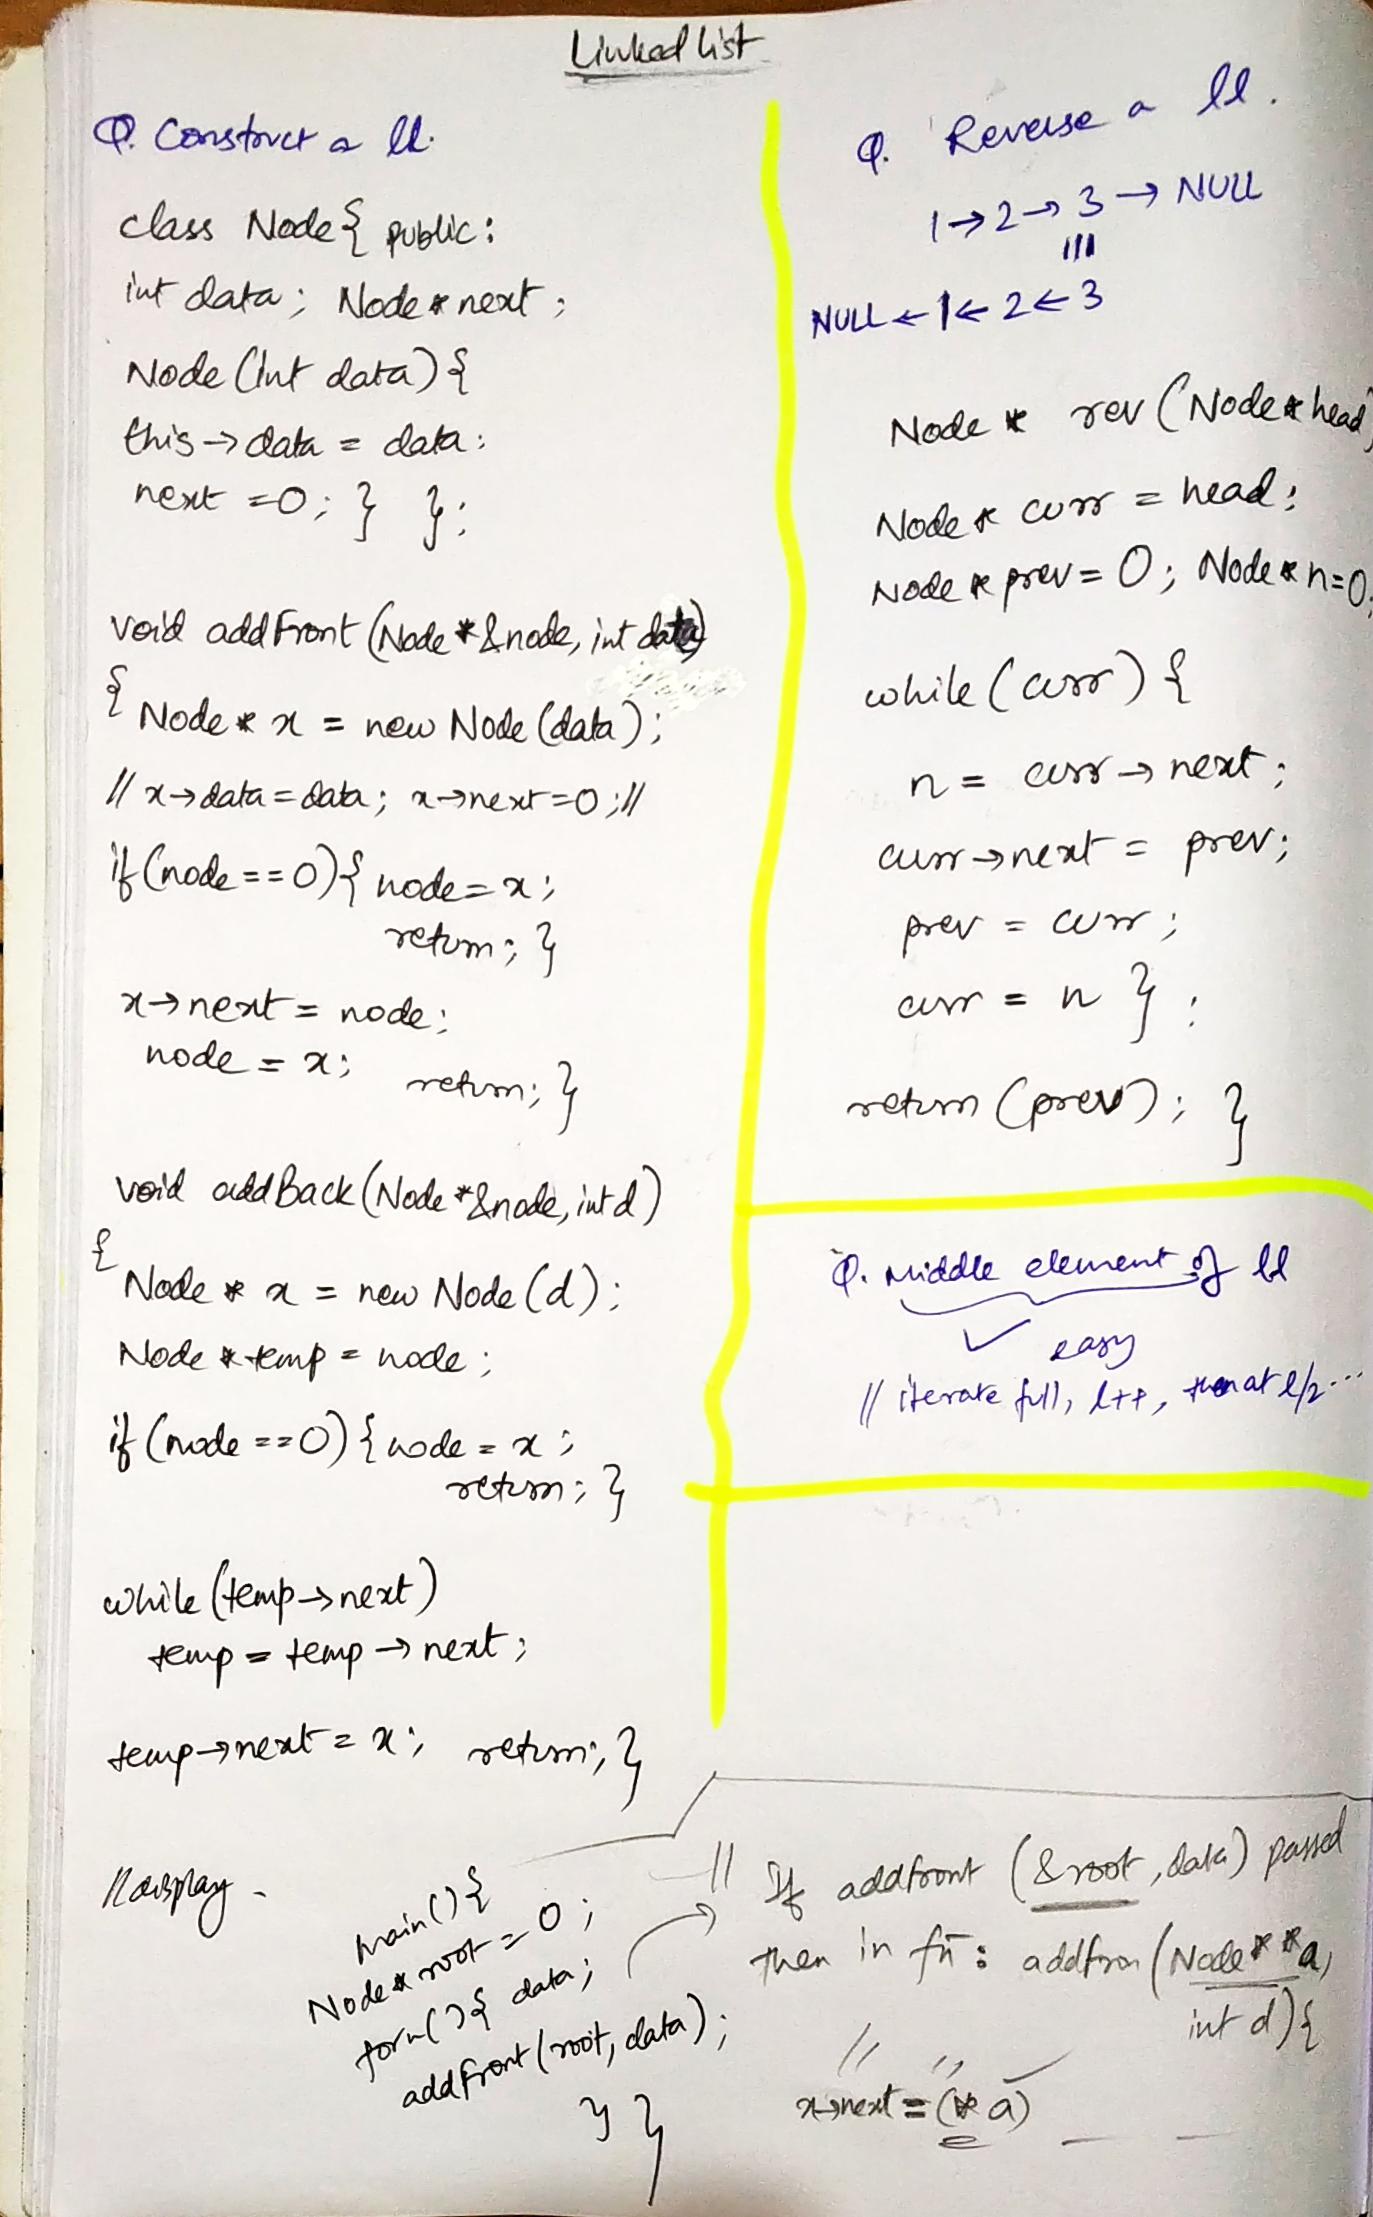 Linked list
Q. Construct a ll.
class Node{ public:
int data; Node*next;
Node (int data){
this→data = data;
next =0; } };
void addFront (Node *&node, int data)
{ Node* x = new Node (data);
// x→data = data; x→next=0 ;//
if (node == 0){ node = x;
return; }
x→next = node;
node = x; return; }
void addBack (Node *&node, int d)
{
Node * x = new Node (d);
Node * temp = node ;
if (node ==0) { node = x ;
return ; }
while (temp→next)
temp = temp → next ;
temp→next = x; return; }
//display -
main() {
Node* root = 0 ;
forn() { data;
addFront (root, data);
} }
Q. Reverse a ll.
1→2→3→NULL
III
NULL←1←2←3
Node * rev (Node* head)
Node * curr = head;
Node * prev = 0; Node* n=0;
while (curr) {
n = curr→next ;
curr→next = prev;
prev = curr ;
curr = n } ;
return (prev) ; }
Q. Middle element of ll
✓ easy
// iterate full, l++, then at l/2 ...
// If addfront (&root, data) passed
then in fn : addfron (Node **a,
int d){
// ,, ✓
x→next = (*a)